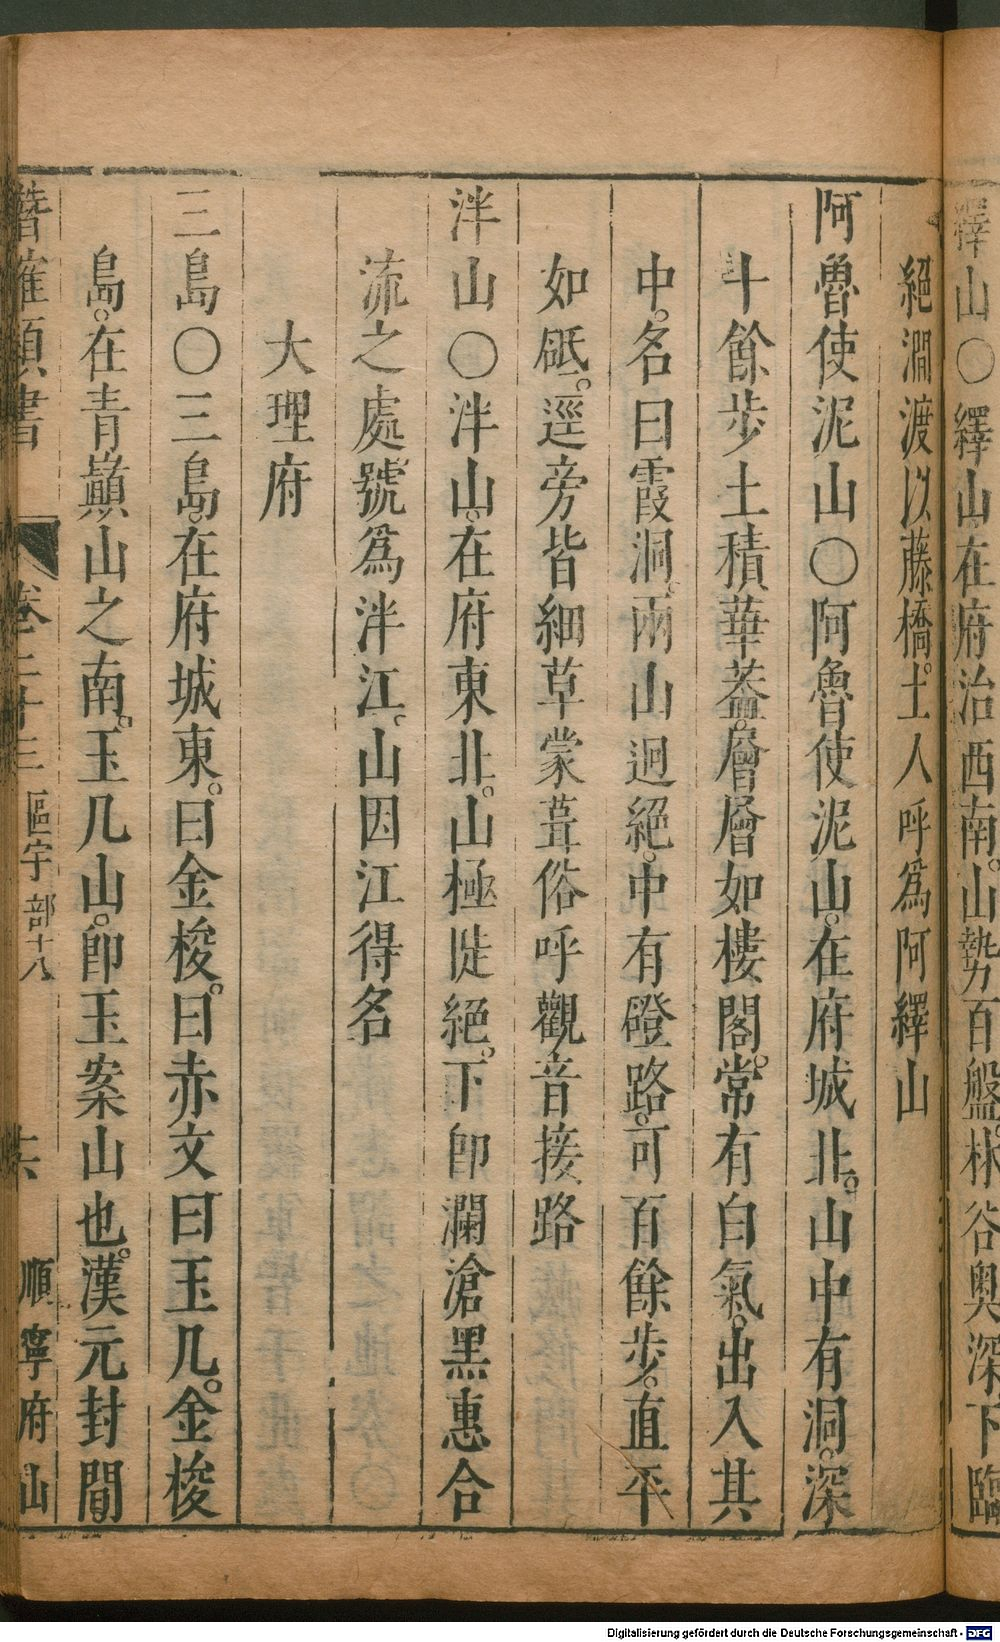 繹山○繹山在府治西南。山勢百盤。林谷奧深下臨
絕澗渡以藤橋。土人呼爲阿繹山
阿魯使泥山○阿魯使泥山。在府城北。山中有洞。深
十餘步土積華蓋。層層如樓閣。常有白氣。出入其
中。名曰霞洞。兩山迥絕。中有磴路。可百餘步。直平
如砥。逕旁皆細草蒙葺俗呼觀音接路
泮山○泮山。在府東北。山極陡絕。下卽瀾滄黑惠合
流之處號爲泮江。山因江得名
大理府
三島○三島。在府城東。曰金梭。曰赤文曰玉几。金梭
島。在青巔山之南。玉几山。卽玉案山也。漢元封間。
潛確類書 卷二十三 區宇部十八 六 順寧府山
Digitalisierung gefördert durch die Deutsche Forschungsgemeinschaft - DFG